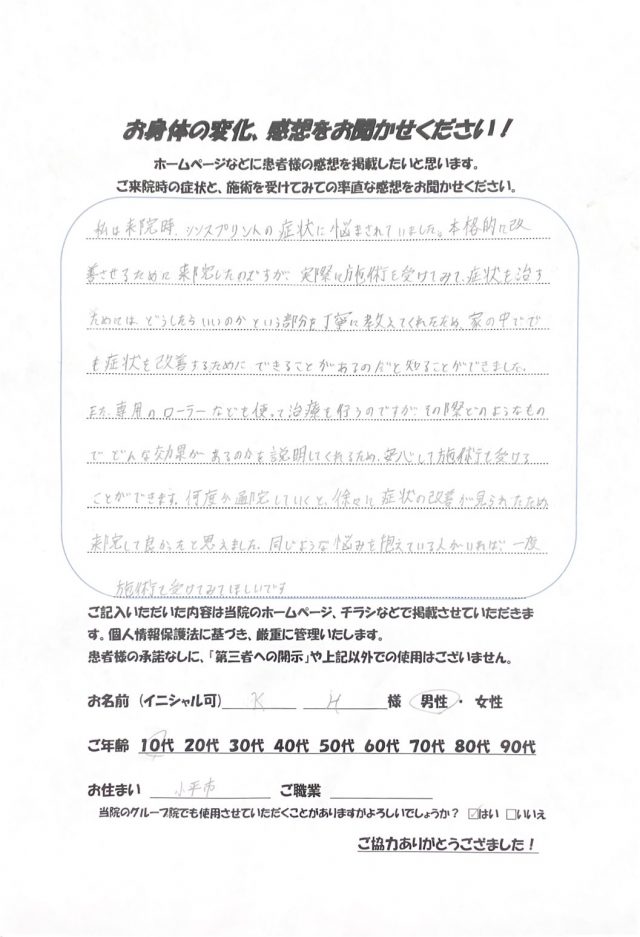 お身体の変化、感想をお聞かせください！
ホームページなどに患者様の感想を掲載したいと思います。
ご来院時の症状と、施術を受けてみての率直な感想をお聞かせください。
私は来院時、シンスプリントの症状に悩まされていました。本格的に改
善させるために来院したのですが、実際に施術を受けてみて、症状を治す
ためには、どうしたらいいのかという部分を丁寧に教えてくれたため、家の中でで
も症状を改善するためにできることがあるのだと知ることができました。
また、専用のローラーなども使って治療を行うのですが、その際どのようなもの
でどんな効果があるのかを説明してくれるため、安心して施術を受ける
ことができます。何度か通院していくと、徐々に症状の改善が見られたため
来院して良かったと思えました。同じような悩みを抱えている人がいれば、一度
施術を受けてみてほしいです
ご記入いただいた内容は当院のホームページ、チラシなどで掲載させていただきま
す。個人情報保護法に基づき、厳重に管理いたします。
患者様の承諾なしに、「第三者への開示」や上記以外での使用はございません。
お名前（イニシャル可） K H 様 男性・女性
ご年齢 10代 20代 30代 40代 50代 60代 70代 80代 90代
お住まい 小平市 ご職業
当院のグループ院でも使用させていただくことがありますがよろしいでしょうか？ ☑はい □いいえ
ご協力ありがとうござました！